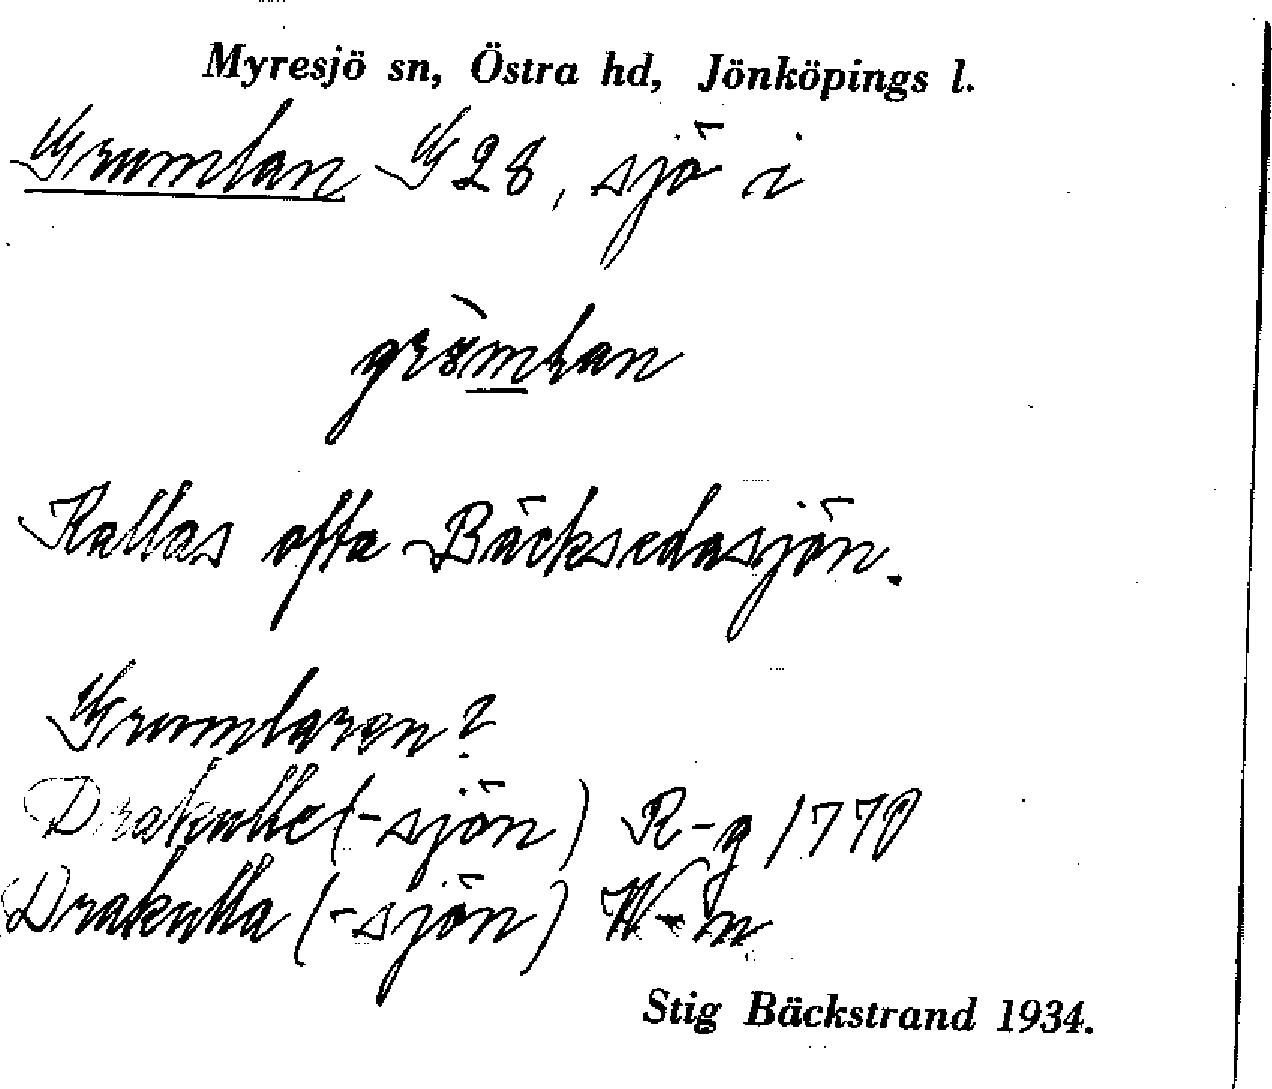 Myresjö sn, Östra hd, Jönköpings l.
Grumlan G 28, sjö i
Kallas ofta Bäcksedasjön.
Grumlaren?
Drakulle (-sjön) R-g 1770
Drakulla (-sjön) W-n
Stig Bäckstrand 1934.